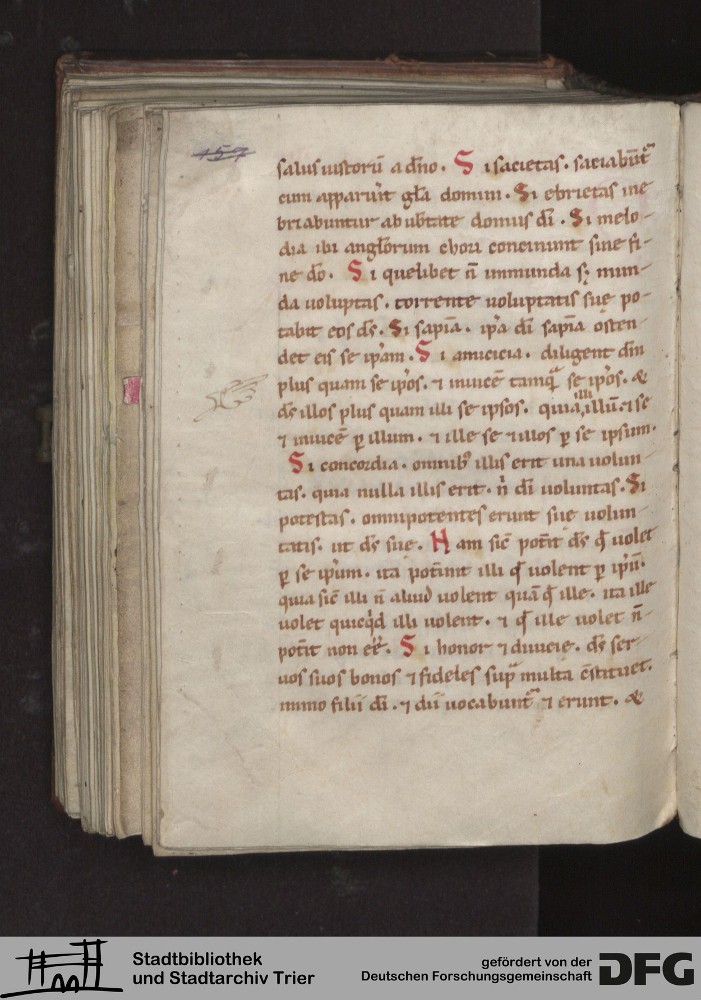 157
salus iustorū a dn̄o. Si sacietas. saciabūt᷑
cum apparuit gl̄a domini. Si ebrietas ine
briabuntur ab ub̄tate domus dī. Si melo-
dia ibi angl̄orum chori concinunt sine fi-
ne dō. Si quelibet n̄ immunda sꝫ mun-
da uoluptas. torrente uoluptatis sue po-
tabit eos ds̄. Si sapīa. ip̄a dī sapīa osten-
det eis se ip̄am. Si amicicia. diligent dm̄
plus quam se ip̄os. ⁊ inuicē tamq̄ se ip̄os. &
ds̄ illos plus quam illi se ipsos. quia illi illū. ⁊ se
⁊ inuicē ꝑ illum. ⁊ ille se ⁊ illos ꝑ se ipsum.
Si concordia. omnibꝰ illis erit una uolun-
tas. quia nulla illis erit. n̄ dī uoluntas. Si
potestas. omnipotentes erunt sue uolun-
tatis. ut ds̄ sue. Nam sic̄ pot̄it ds̄ qd̄ uolet
ꝑ se ip̄um. ita pot̄unt illi qd̄ uolent ꝑ ip̄ū.
quia sic̄ illi n̄ aliud uolent quā qd̄ ille. ita ille
uolet quicq̄d illi uolent. ⁊ qd̄ ille uolet n̄-
pot̄it non eē. Si honor ⁊ diuicie. ds̄ ser-
uos suos bonos ⁊ fideles sup̄ multa c̄stituet.
immo filii dī. ⁊ dii uocabunt᷑ ⁊ erunt. &
Stadtbibliothek
und Stadtarchiv Trier
gefördert von der
Deutschen Forschungsgemeinschaft
DFG